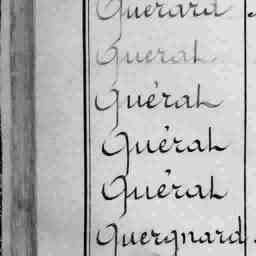 Quérard
Quérat
Quérat
Quérat
Quérat
Quergnard